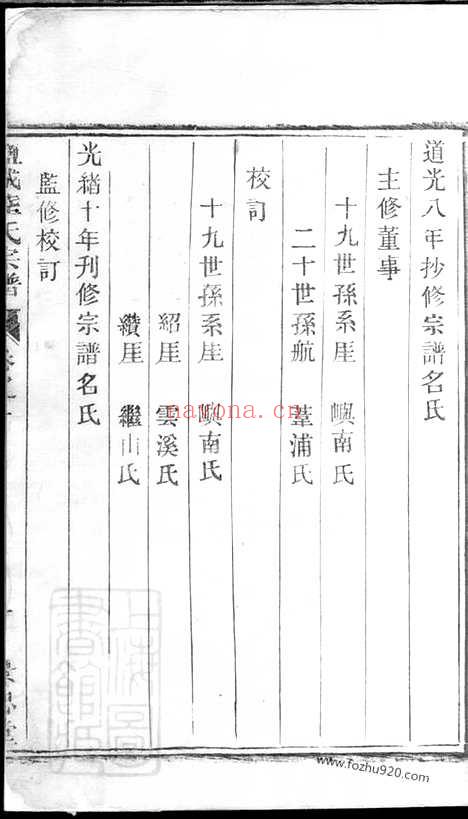 道光八年抄修宗譜名氏
主修董事
十九世孫系厓 嶼南氏
二十世孫航 葦浦氏
校訂
十九世孫系厓 嶼南氏
紹厓 雲溪氏
纘厓 繼山氏
光緒十年刊修宗譜名氏
監修校訂
氏宗譜
上海圖書館藏
nayona.cn
www.fozhu920.com